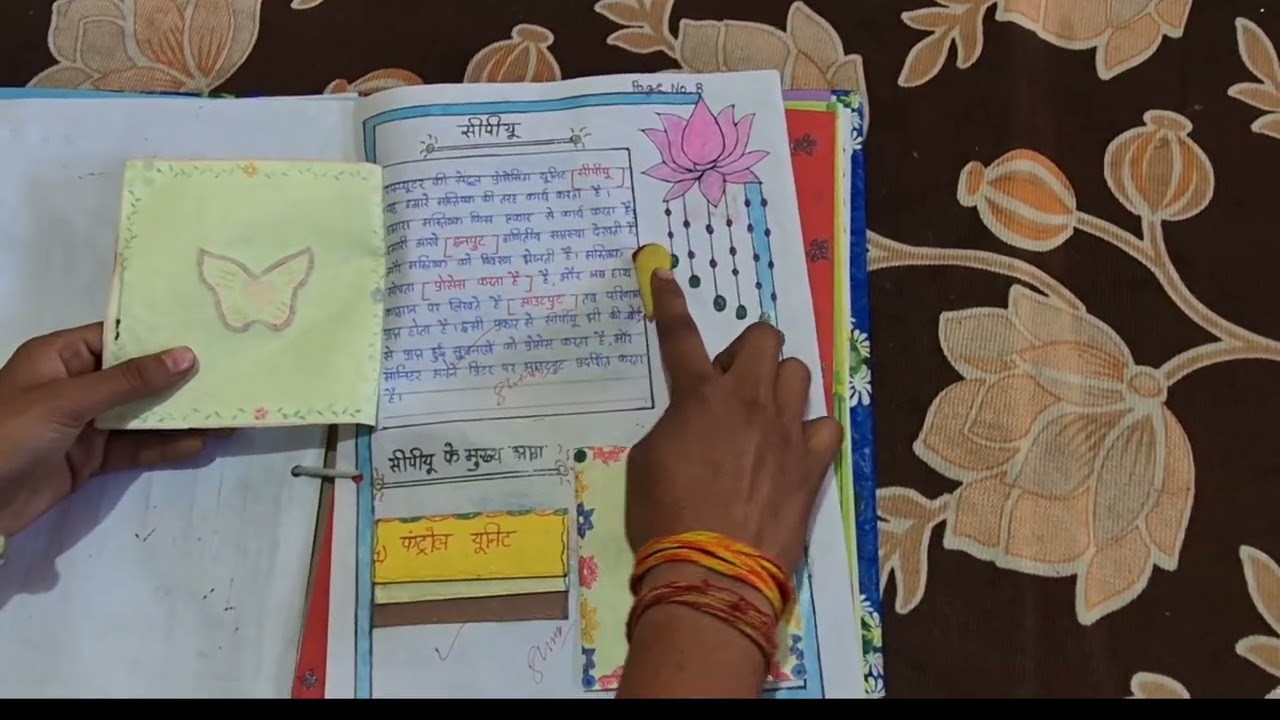 Page No. 8
सीपीयू
कम्प्यूटर की सेंट्रल प्रोसेसिंग यूनिट [सीपीयू]
यह हमारे मस्तिष्क की तरह कार्य करता है।
हमारा मस्तिष्क किस प्रकार से कार्य करता है,
हमारी आंखे [इनपुट] गणितीय समस्या देखती है,
और मस्तिष्क को विवरण भेजती है। मस्तिष्क
सोचता [प्रोसेस करता है] है, और हम हाथ
कागज पर लिखते है [आउटपुट] तब परिणाम
प्राप्त होता है। इसी प्रकार से सीपीयू भी की बोर्ड
से प्राप्त हुई सूचनाओं को प्रोसेस करता है, और
मॉनिटर प्रिंटर पर आउटपुट प्रदर्शित करता
है।
सीपीयू के मुख्य भाग
कंट्रोल यूनिट